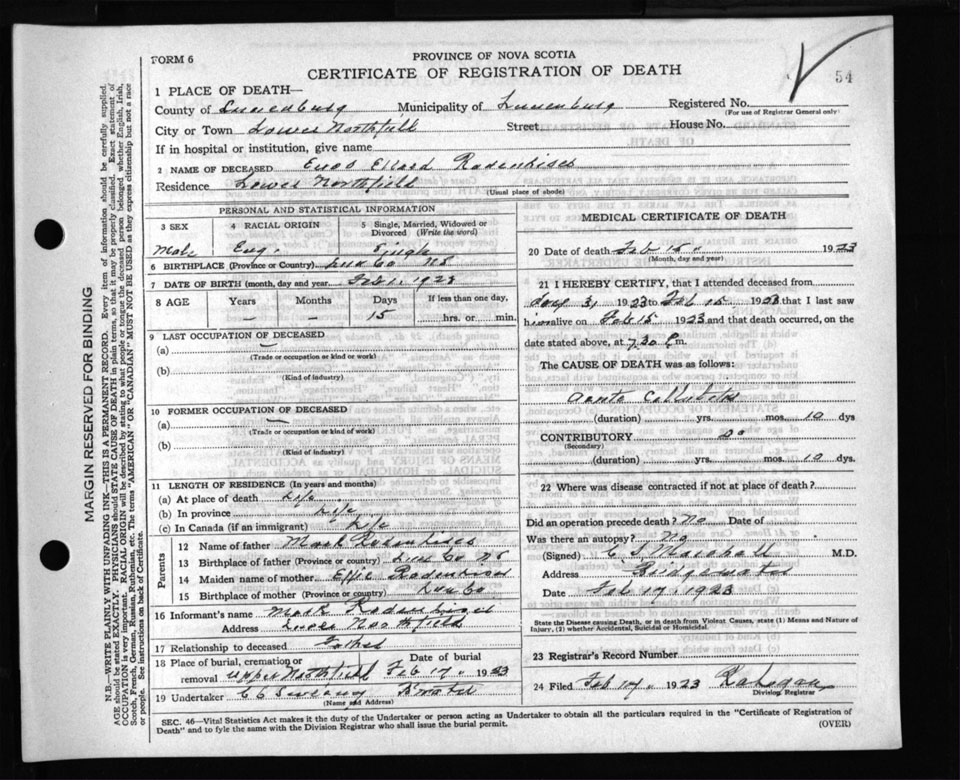 FORM 6
PROVINCE OF NOVA SCOTIA
CERTIFICATE OF REGISTRATION OF DEATH
54
1 PLACE OF DEATH—
County of Lunenburg Municipality of Lunenburg Registered No.
(For use of Registrar General only)
City or Town Lower Northfield Street House No.
If in hospital or institution, give name
2 NAME OF DECEASED Enos Ellard Rodenhiser
Residence Lower Northfield
(Usual place of abode)
PERSONAL AND STATISTICAL INFORMATION
3 SEX 4 RACIAL ORIGIN 5 Single, Married, Widowed or Divorced (Write the word)
Male Eng. Single
6 BIRTHPLACE (Province or Country) Lun Co NS
7 DATE OF BIRTH (month, day and year Feb 1. 1923
8 AGE Years Months Days If less than one day,
— — 15 hrs. or min.
9 LAST OCCUPATION OF DECEASED
(a) —
(Trade or occupation or kind or work)
(b)
(Kind of industry)
10 FORMER OCCUPATION OF DECEASED
(a) —
(Trade or occupation or kind or work)
(b)
(Kind of industry)
11 LENGTH OF RESIDENCE (In years and months)
(a) At place of death Life
(b) In province Life
(c) In Canada (if an immigrant) Life
Parents
12 Name of father Mark Rodenhiser
13 Birthplace of father (Province or country) Lun Co NS
14 Maiden name of mother Effie Rodenhiser
15 Birthplace of mother (Province or country) Lun Co
16 Informant's name Mark Rodenhiser
Address Lower Northfield
17 Relationship to deceased Father
18 Place of burial, cremation or removal Upper Northfield Date of burial Feb 17, 1923
19 Undertaker C C Sweeny B'water
(Name and Address)
MEDICAL CERTIFICATE OF DEATH
20 Date of death Feb 15. 1923
(Month, day and year)
21 I HEREBY CERTIFY, that I attended deceased from
Jany 31 1923 to Feb 15 1923 that I last saw
him alive on Feb 15 1923 and that death occurred, on the
date stated above, at 7.30 P.m.
The CAUSE OF DEATH was as follows:
Acute Cellulitis
(duration) yrs. mos. 10 dys
CONTRIBUTORY Do
(Secondary)
(duration) yrs. mos. 10 dys.
22 Where was disease contracted if not at place of death?
Did an operation precede death? No Date of
Was there an autopsy? No
(Signed) C S Marshall M.D.
Address Bridgewater
Date Feb 17, 1923
State the Disease causing Death, or in death from Violent Causes, state (1) Means and Nature of Injury, (2) whether Accidental, Suicidal or Homicidal.
23 Registrar's Record Number
24 Filed Feb 17. 1923
Division Registrar
SEC. 46—Vital Statistics Act makes it the duty of the Undertaker or person acting as Undertaker to obtain all the particulars required in the "Certificate of Registration of
Death" and to fyle the same with the Division Registrar who shall issue the burial permit.
(OVER)
MARGIN RESERVED FOR BINDING
N.B.—WRITE PLAINLY WITH UNFADING INK—THIS IS A PERMANENT RECORD. Every item of information should be carefully supplied.
AGE should be stated EXACTLY. PHYSICIANS should STATE CAUSE OF DEATH in plain terms, so that it may be properly classified. Exact statement of
OCCUPATION is very important. RACIAL ORIGIN will be described by stating to what people or tongue the deceased person belonged whether English, Irish,
Scotch, French, German, Russian, Ruthenian, etc. The terms "AMERICAN" OR "CANADIAN" MUST NOT BE USED as they express citizenship but not a race
or people. See instructions on back of Certificate.